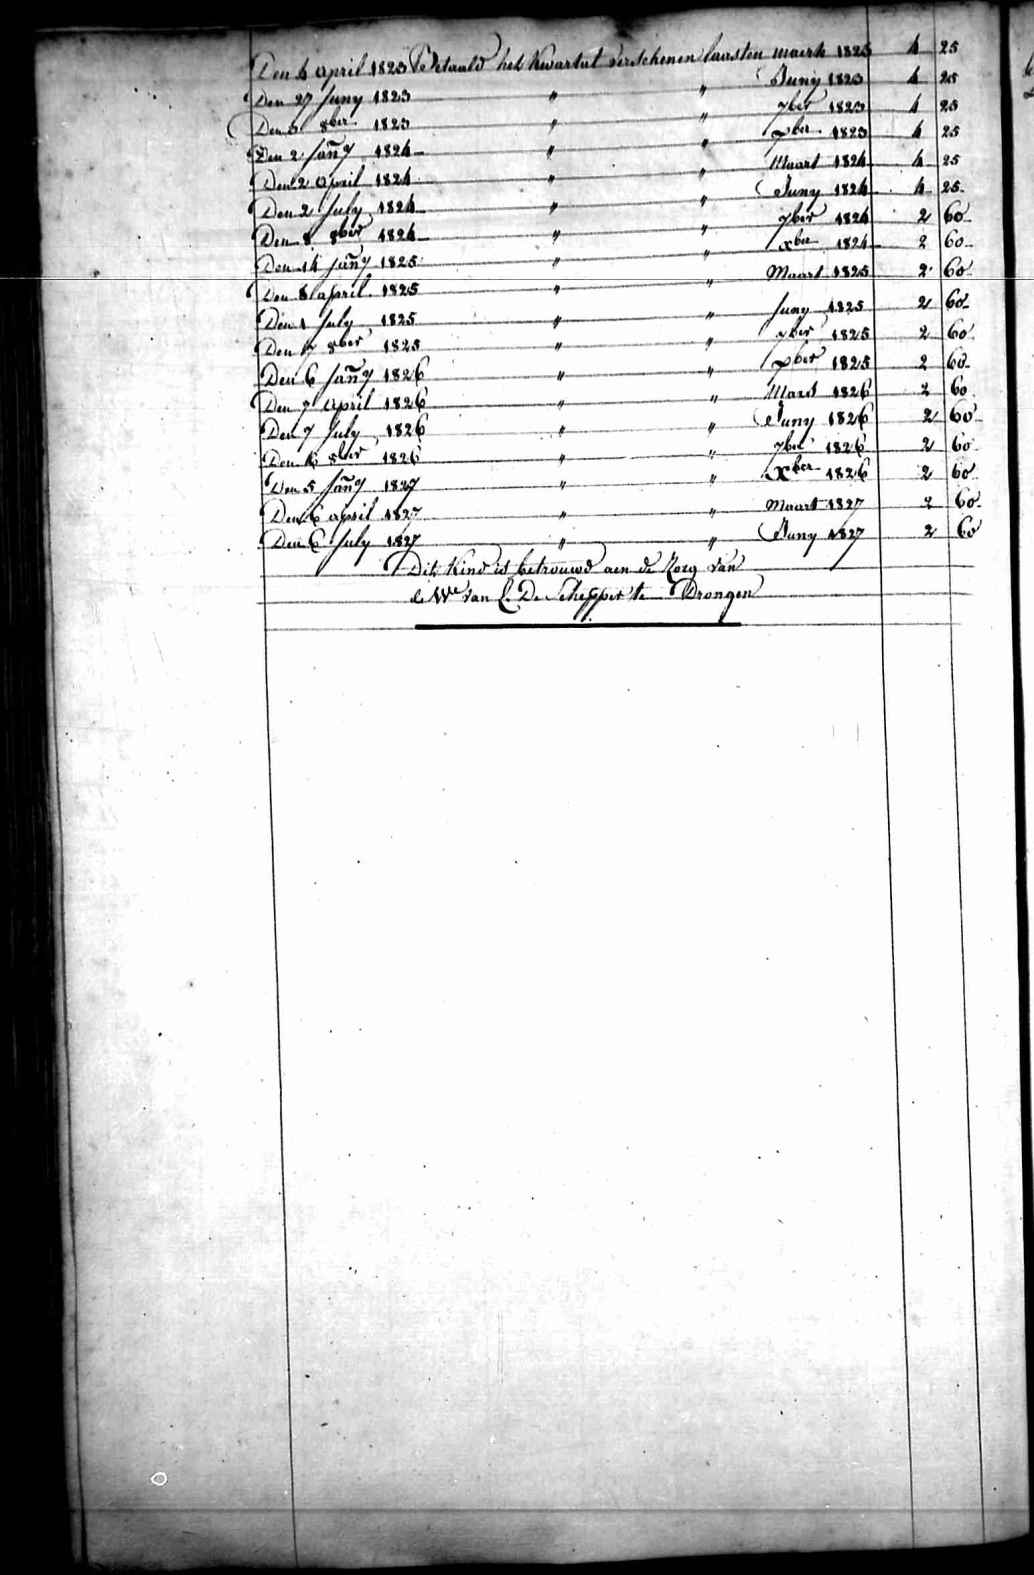 Den 4 april 1823 Betaald het kwartal verschenen laasten maerte 1823 4 25
Den 27 Juny 1823 " " Juny 1823 4 25
Den 3 8ber 1823 " " 7ber 1823 4 25
Den 2 Jañy 1824 " " xber 1823 4 25
Den 2 april 1824 " " Maart 1824 4 25
Den 2 July 1824 " " Juny 1824 4 25
Den 8ber 1824 " " 7ber 1824 2 60
Den 14 Jañy 1825 " " xber 1824 2 60
Den 8 april 1825 " " Maart 1825 2 60
Den 1 July 1825 " " Juny 1825 2 60
Den 8ber 1825 " " 7ber 1825 2 60
Den 6 Jañy 1826 " " xber 1825 2 60
Den 7 April 1826 " " Mars 1826 2 60
Den 7 July 1826 " " Juny 1826 2 60
Den 16 8ber 1826 " " 7ber 1826 2 60
Den 5 Jañy 1827 " " Xber 1826 2 60
Den 6 april 1827 " " Maart 1827 2 60
Den 6 July 1827 " " Juny 1827 2 60
Dit Kind is betrouwd aen de Zorg van
de We van L. De Schepper te Drongen